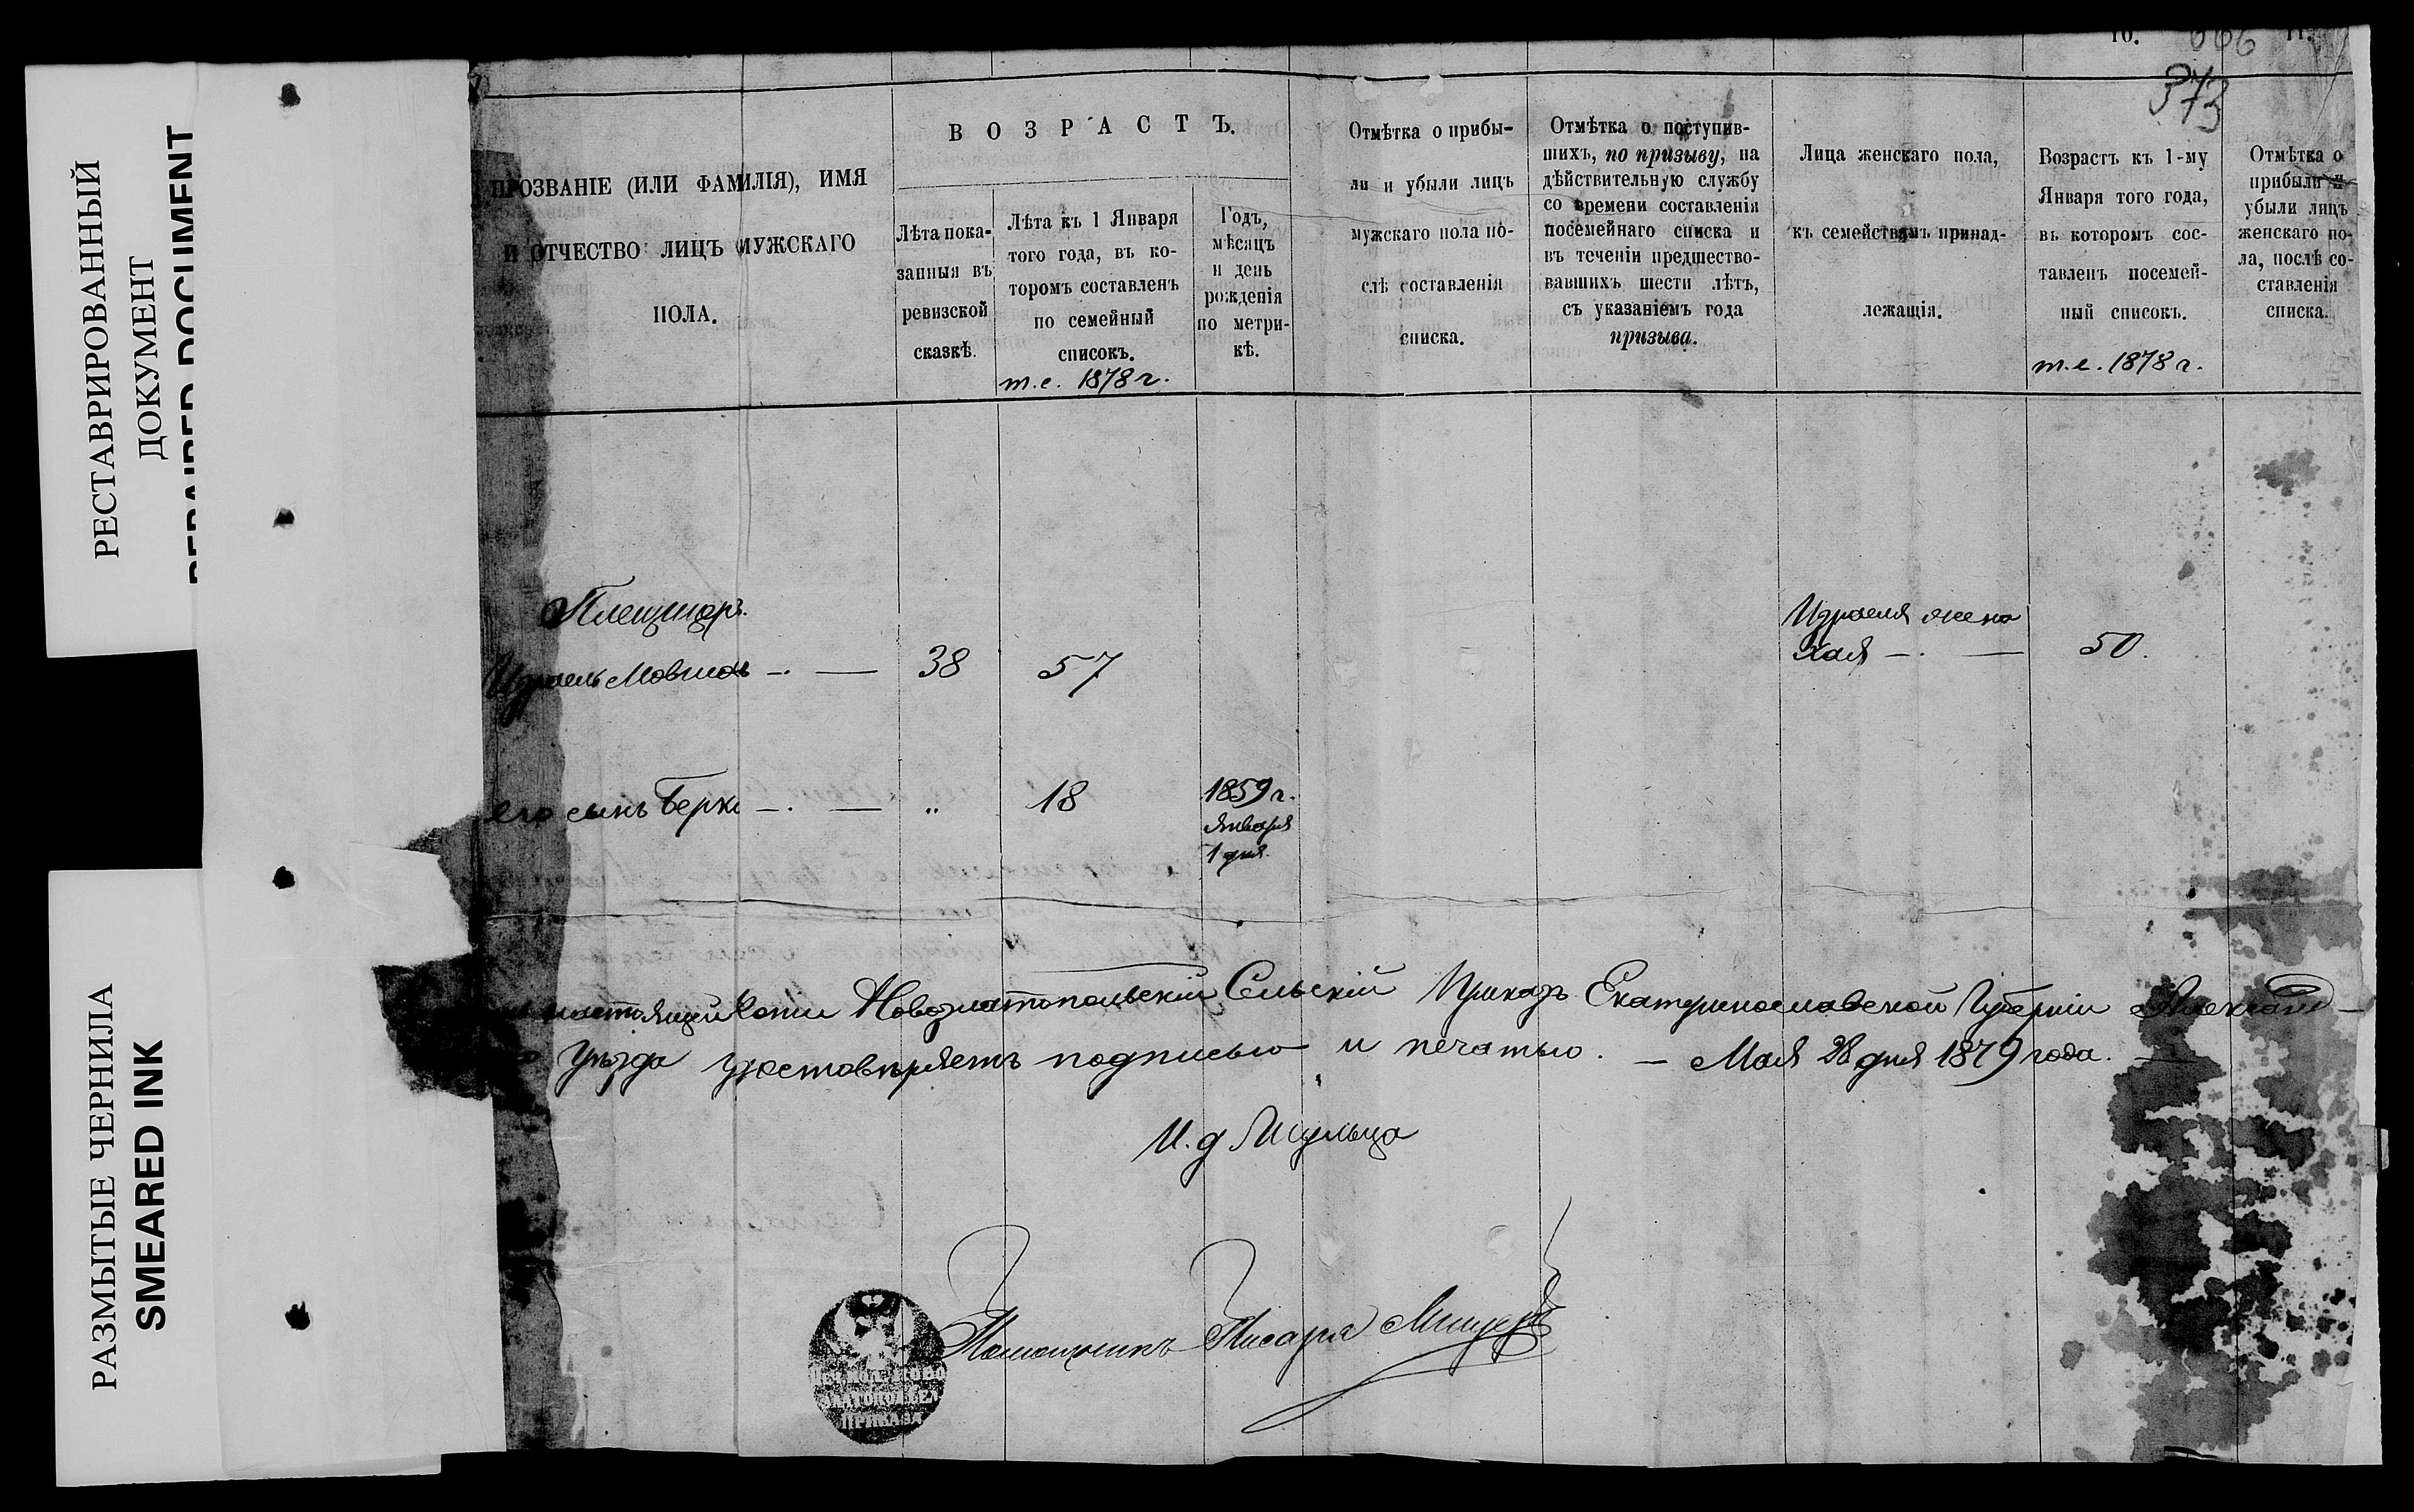 РЕСТАВРИРОВАННЫЙ
ДОКУМЕНТ
REPAIRED DOCUMENT
РАЗМЫТЫЕ ЧЕРНИЛА
SMEARED INK
10. 11.
373
ПРОЗВАНІЕ (ИЛИ ФАМИЛІЯ), ИМЯ
И ОТЧЕСТВО ЛИЦЪ МУЖСКАГО
ПОЛА.
ВОЗРАСТЪ.
Лѣта пока-
занныя въ
ревизской
сказкѣ.
Лѣта къ 1 Января
того года, въ ко-
торомъ составленъ
по семейный
списокъ.
т.е. 1878 г.
Годъ,
мѣсяцъ
и день
рожденія
по метри-
кѣ.
Отмѣтка о прибы-
ли и убыли лицъ
мужскаго пола по-
слѣ составленія
списка.
Отмѣтка о поступив-
шихъ, по призыву, на
дѣйствительную службу
со времени составленія
посемейнаго списка и
въ теченіи предшество-
вавшихъ шести лѣтъ,
съ указаніемъ года
призыва.
Лица женскаго пола,
къ семействамъ принад-
лежащія.
Возрастъ къ 1-му
Января того года,
въ которомъ сос-
тавленъ посемей-
ный списокъ.
т.е. 1878 г.
Отмѣтка о
прибыли и
убыли лицъ
женскаго по-
ла, послѣ со-
ставленія
списка.
Плещицеръ.
Израель Мовшовъ —. — 38 57
Израеля жена
Хая —. — 50.
его сынъ Берко —. — „ 18
1859 г.
Января
1 дня.
настоящей копіи Новозлатопольскій Сельскій Приказъ Екатеринославской Губерніи Александ-
Уѣзда удостовѣряетъ подписью и печатью. — Мая 28 дня 1879 года. —
И. д Шульца
Помощникъ Писаря
ЗЛАТОПОЛЬ
ПРИКАЗА